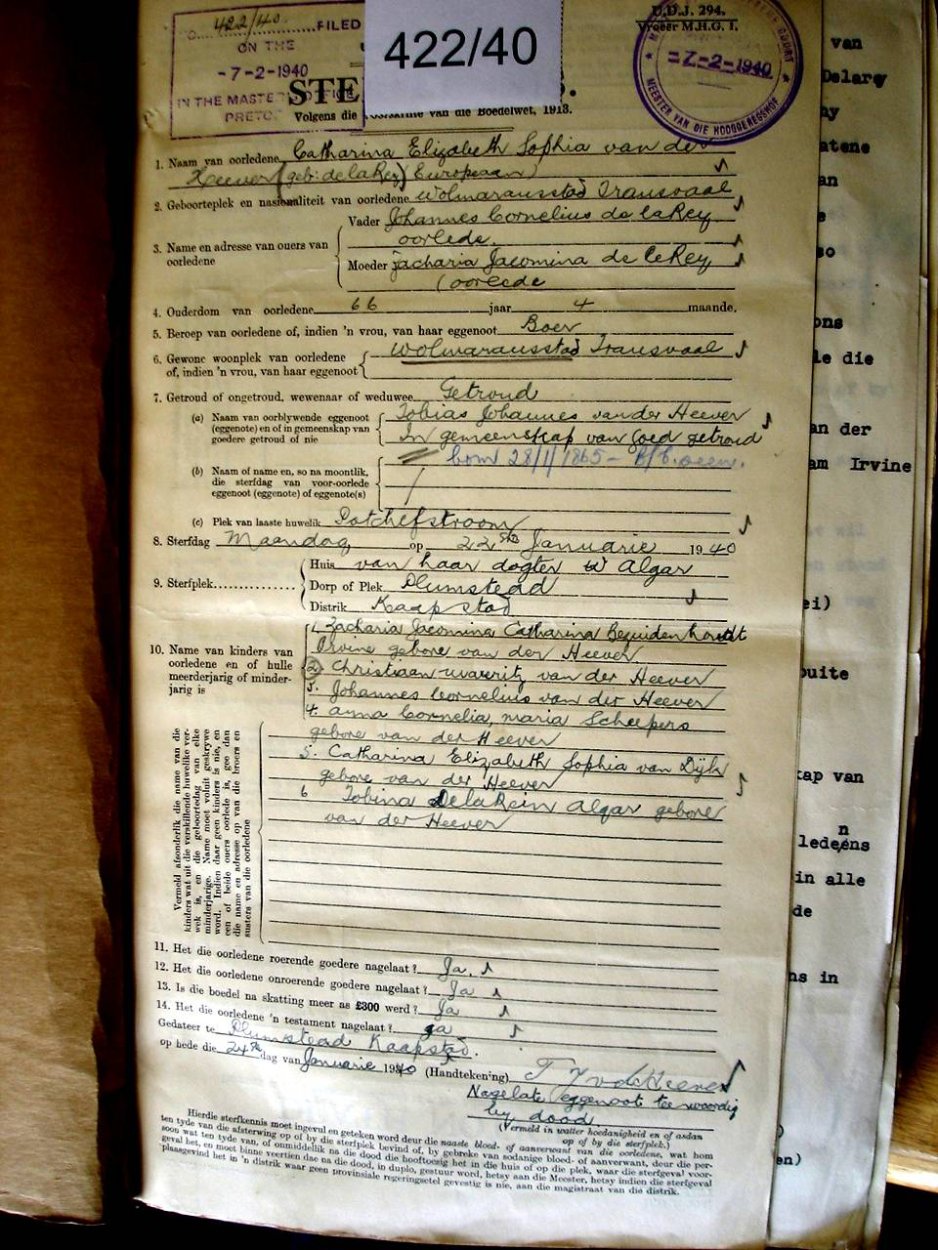 422/40 FILED
ON THE
-7-2-1940
IN THE MASTER'S OFFICE
PRETO
422/40
U.D.J. 294.
Vroeër M.H.G. 1.
-7-2-1940
MEESTER VAN DIE HOOGGEREGSHOF
STE
Volgens die van die Boedelwet, 1913.
1. Naam van oorledene Catharina Elizabeth Sophia van der
Heever (geb: de la Rey) Europeaan
2. Geboorteplek en nasionaliteit van oorledene Wolmaransstad Transvaal
3. Name en adresse van ouers van oorledene
Vader Johannes Cornelius de la Rey
oorlede.
Moeder Zacharia Jacomina de la Rey
(oorlede
4. Ouderdom van oorledene 66 jaar 4 maande.
5. Beroep van oorledene of, indien 'n vrou, van haar eggenoot Boer
6. Gewone woonplek van oorledene
of, indien 'n vrou, van haar eggenoot
Wolmaransstad Transvaal
7. Getroud of ongetroud, wewenaar of weduwee Getroud
(a) Naam van oorblywende eggenoot
(eggenote) en of in gemeenskap van
goedere getroud of nie
Tobias Johannes van der Heever
In gemeenskap van Goed getroud
born 28/1/1865 - B/C seen.
(b) Naam of name en, so na moontlik,
die sterfdag van voor-oorlede
eggenoot (eggenote) of eggenote(s)
(c) Plek van laaste huwelik Potchefstroom
8. Sterfdag Maandag op 22ste Januarie 1940
9. Sterfplek
Huis van haar dogter Algar
Dorp of Plek Plumstead
Distrik Kaapstad
10. Name van kinders van
oorledene en of hulle
meerderjarig of minder-
jarig is
1. Zacharia Jacomina Catharina Bezuidenhoudt
Irvine gebore van der Heever
2. Christiaan uwaeritz van der Heever
3. Johannes Cornelius van der Heever
4. Anna Cornelia Maria Scheepers
gebore van der Heever
5. Catharina Elizabeth Sophia van Dijk
gebore van der Heever
6 Tobina DelaRein Algar gebore
van der Heever
Vermeld afsonderlik die name van die
kinders wat uit die verskillende huwelike ver-
wek is, en die geboortedag van elke
minderjarige. Name moet voluit geskrywe
word. Indien daar geen kinders is nie, en
een of beide ouers oorlede is, gee dan
die name en adresse op van die broers en
susters van die oorledene
11. Het die oorledene roerende goedere nagelaat? Ja.
12. Het die oorledene onroerende goedere nagelaat? Ja
13. Is die boedel na skatting meer as £300 werd? Ja
14. Het die oorledene 'n testament nagelaat? Ja
Gedateer te Plumstead Kaapstad.
op hede die 24ste dag van Januarie 1940 (Handtekening) T J v d Heever
Nagelate eggenoot teenwoordig
by dood
(Vermeld in watter hoedanigheid en of asdan
op of by die sterfplek.)
Hierdie sterfkennis moet ingevul en geteken word deur die naaste bloed- of aanverwant van die oorledene, wat hom
ten tyde van die afsterwing op of by die sterfplek bevind of, by gebreke van sodanige bloed- of aanverwant, deur die per-
soon wat ten tyde van, of onmiddellik na die dood die hooftoesig het in die huis of op die plek, waar die sterfgeval voor-
geval het, en moet binne veertien dae na die dood, in duplo, gestuur word, hetsy aan die Meester, hetsy indien die sterfgeval
plaasgevind het in 'n distrik waar geen provinsiale regeringsetel gevestig is nie, aan die magistraat van die distrik.
van
Delarey
an der
am Irvine
kap van
n
ledeens
in alle
de
ns in